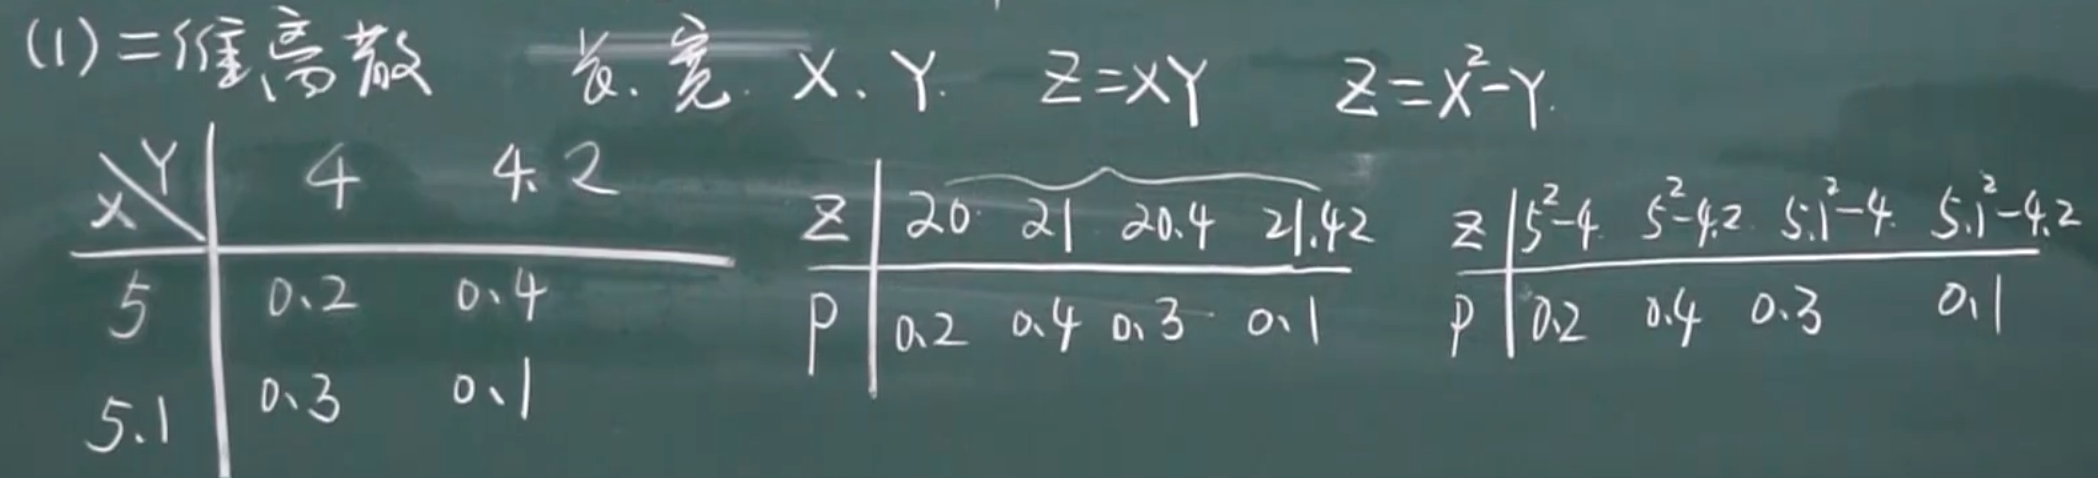 (1) 二维离散 长、宽. X、Y. Z=XY Z=X²-Y.
X Y 4 4.2
5 0.2 0.4
5.1 0.3 0.1
Z 20 21 20.4 21.42
P 0.2 0.4 0.3 0.1
Z 5²-4 5²-4.2 5.1²-4 5.1²-4.2
P 0.2 0.4 0.3 0.1